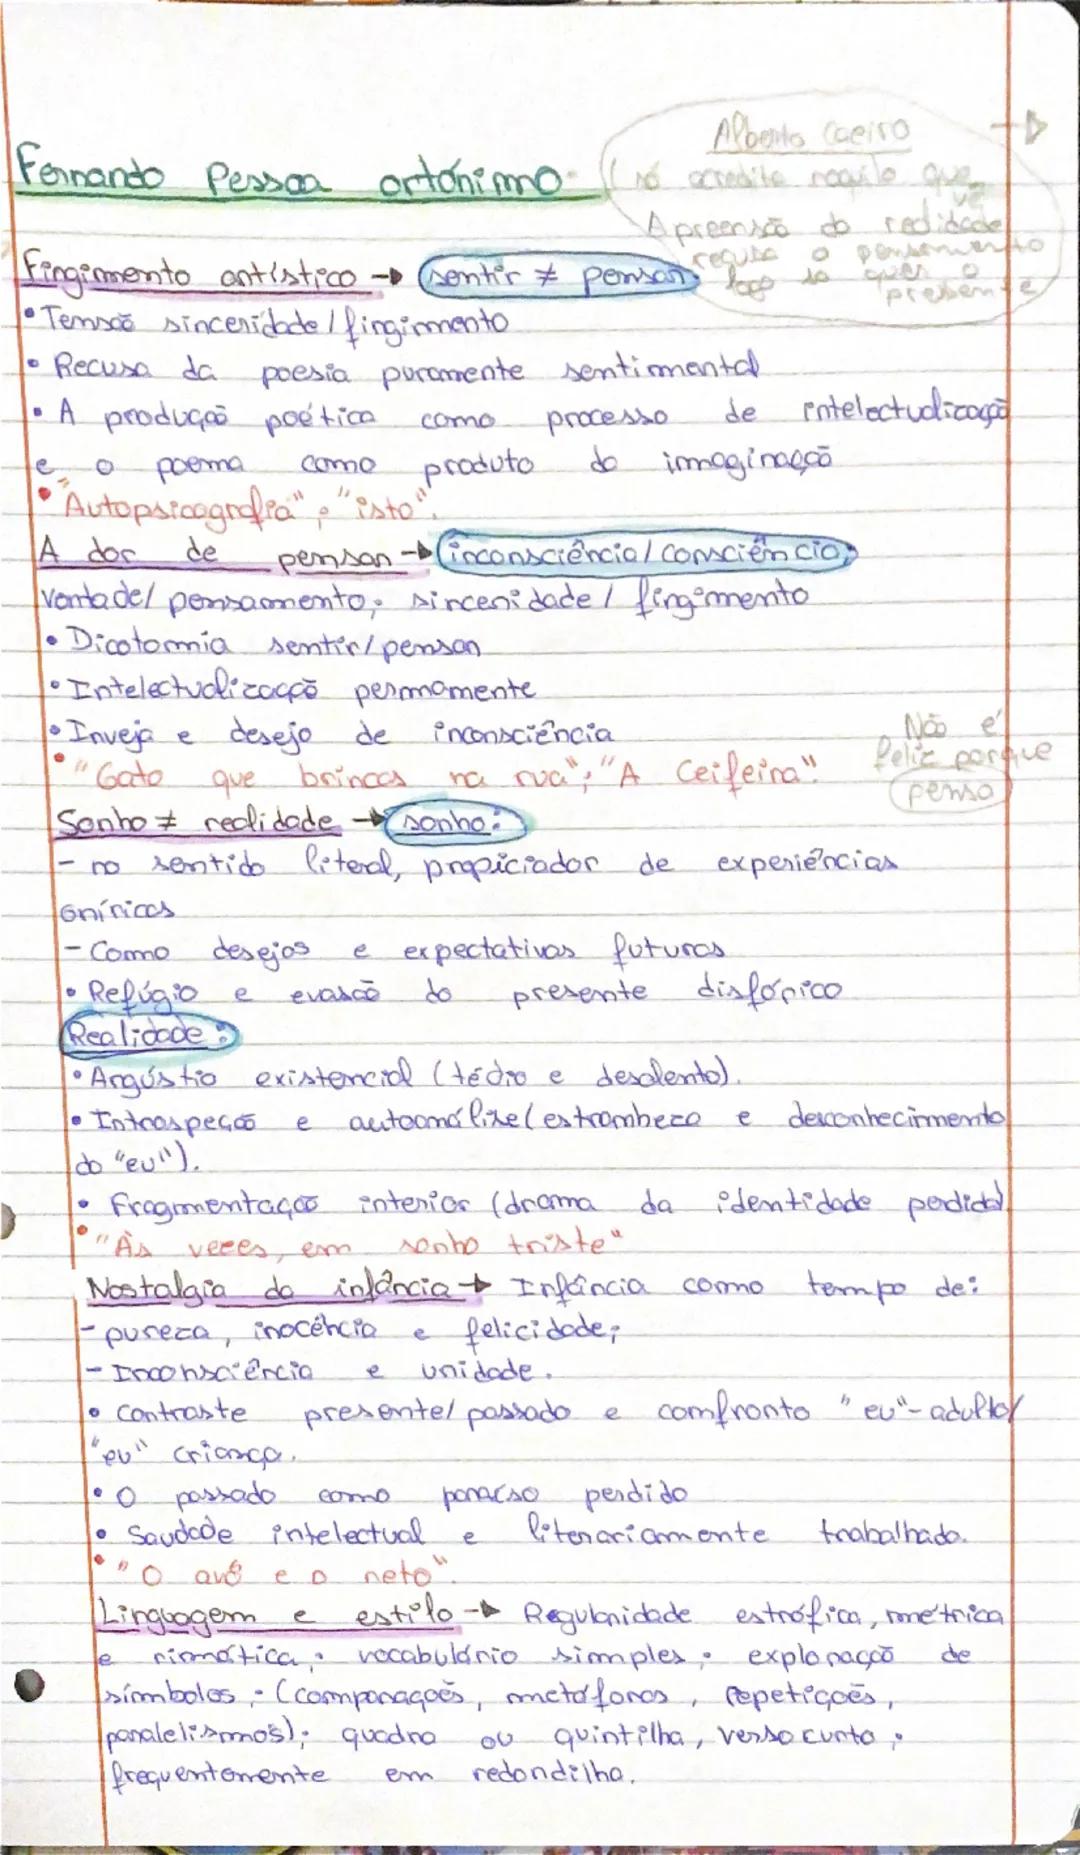 Alberto Caeiro
Fernando Pessoa ortónimo
(só acredita naquilo que
vê
Apreensão da realidade
Fingimento artístico → sentir ≠ pensar
recusa o pensamento
logo só quer o
presente
• Tensão sinceridade / fingimento
• Recusa da poesia puramente sentimental
• A produção poética como processo de intelectualização
e o poema como produto da imaginação
• "Autopsicografia", "isto".
A dor de pensar → inconsciência / consciência;
vontade / pensamento; sinceridade / fingimento
• Dicotomia sentir / pensar
• Intelectualização permamente
• Inveja e desejo de inconsciência
• "Gato que brincas na rua"; "A Ceifeira"
Não é
feliz porque
pensa
Sonho ≠ realidade → sonho:
- no sentido literal, propiciador de experiências
oníricas
- Como desejos e expectativas futuras
• Refúgio e evasão do presente disfórico
Realidade:
• Angústia existencial (tédio e desalento).
• Introspeção e autoanálise (estranheza e desconhecimento
do "eu").
• Fragmentação interior (drama da identidade perdida)
• "Às vezes, em sonho triste"
Nostalgia da infância → Infância como tempo de:
- pureza, inocência e felicidade;
- Inconsciência e unidade.
• Contraste presente / passado e confronto "eu"-adulto/
"eu" criança.
• O passado como paraíso perdido
• Saudade intelectual e literariamente trabalhada.
• "O avô e o neto".
Linguagem e estilo → Regularidade estrófica, métrica
e rimática; vocabulário simples; exploração de
símbolos; (comparações, metáforas, repetições,
paralelismos); quadra ou quintilha, verso curto;
frequentemente em redondilha.